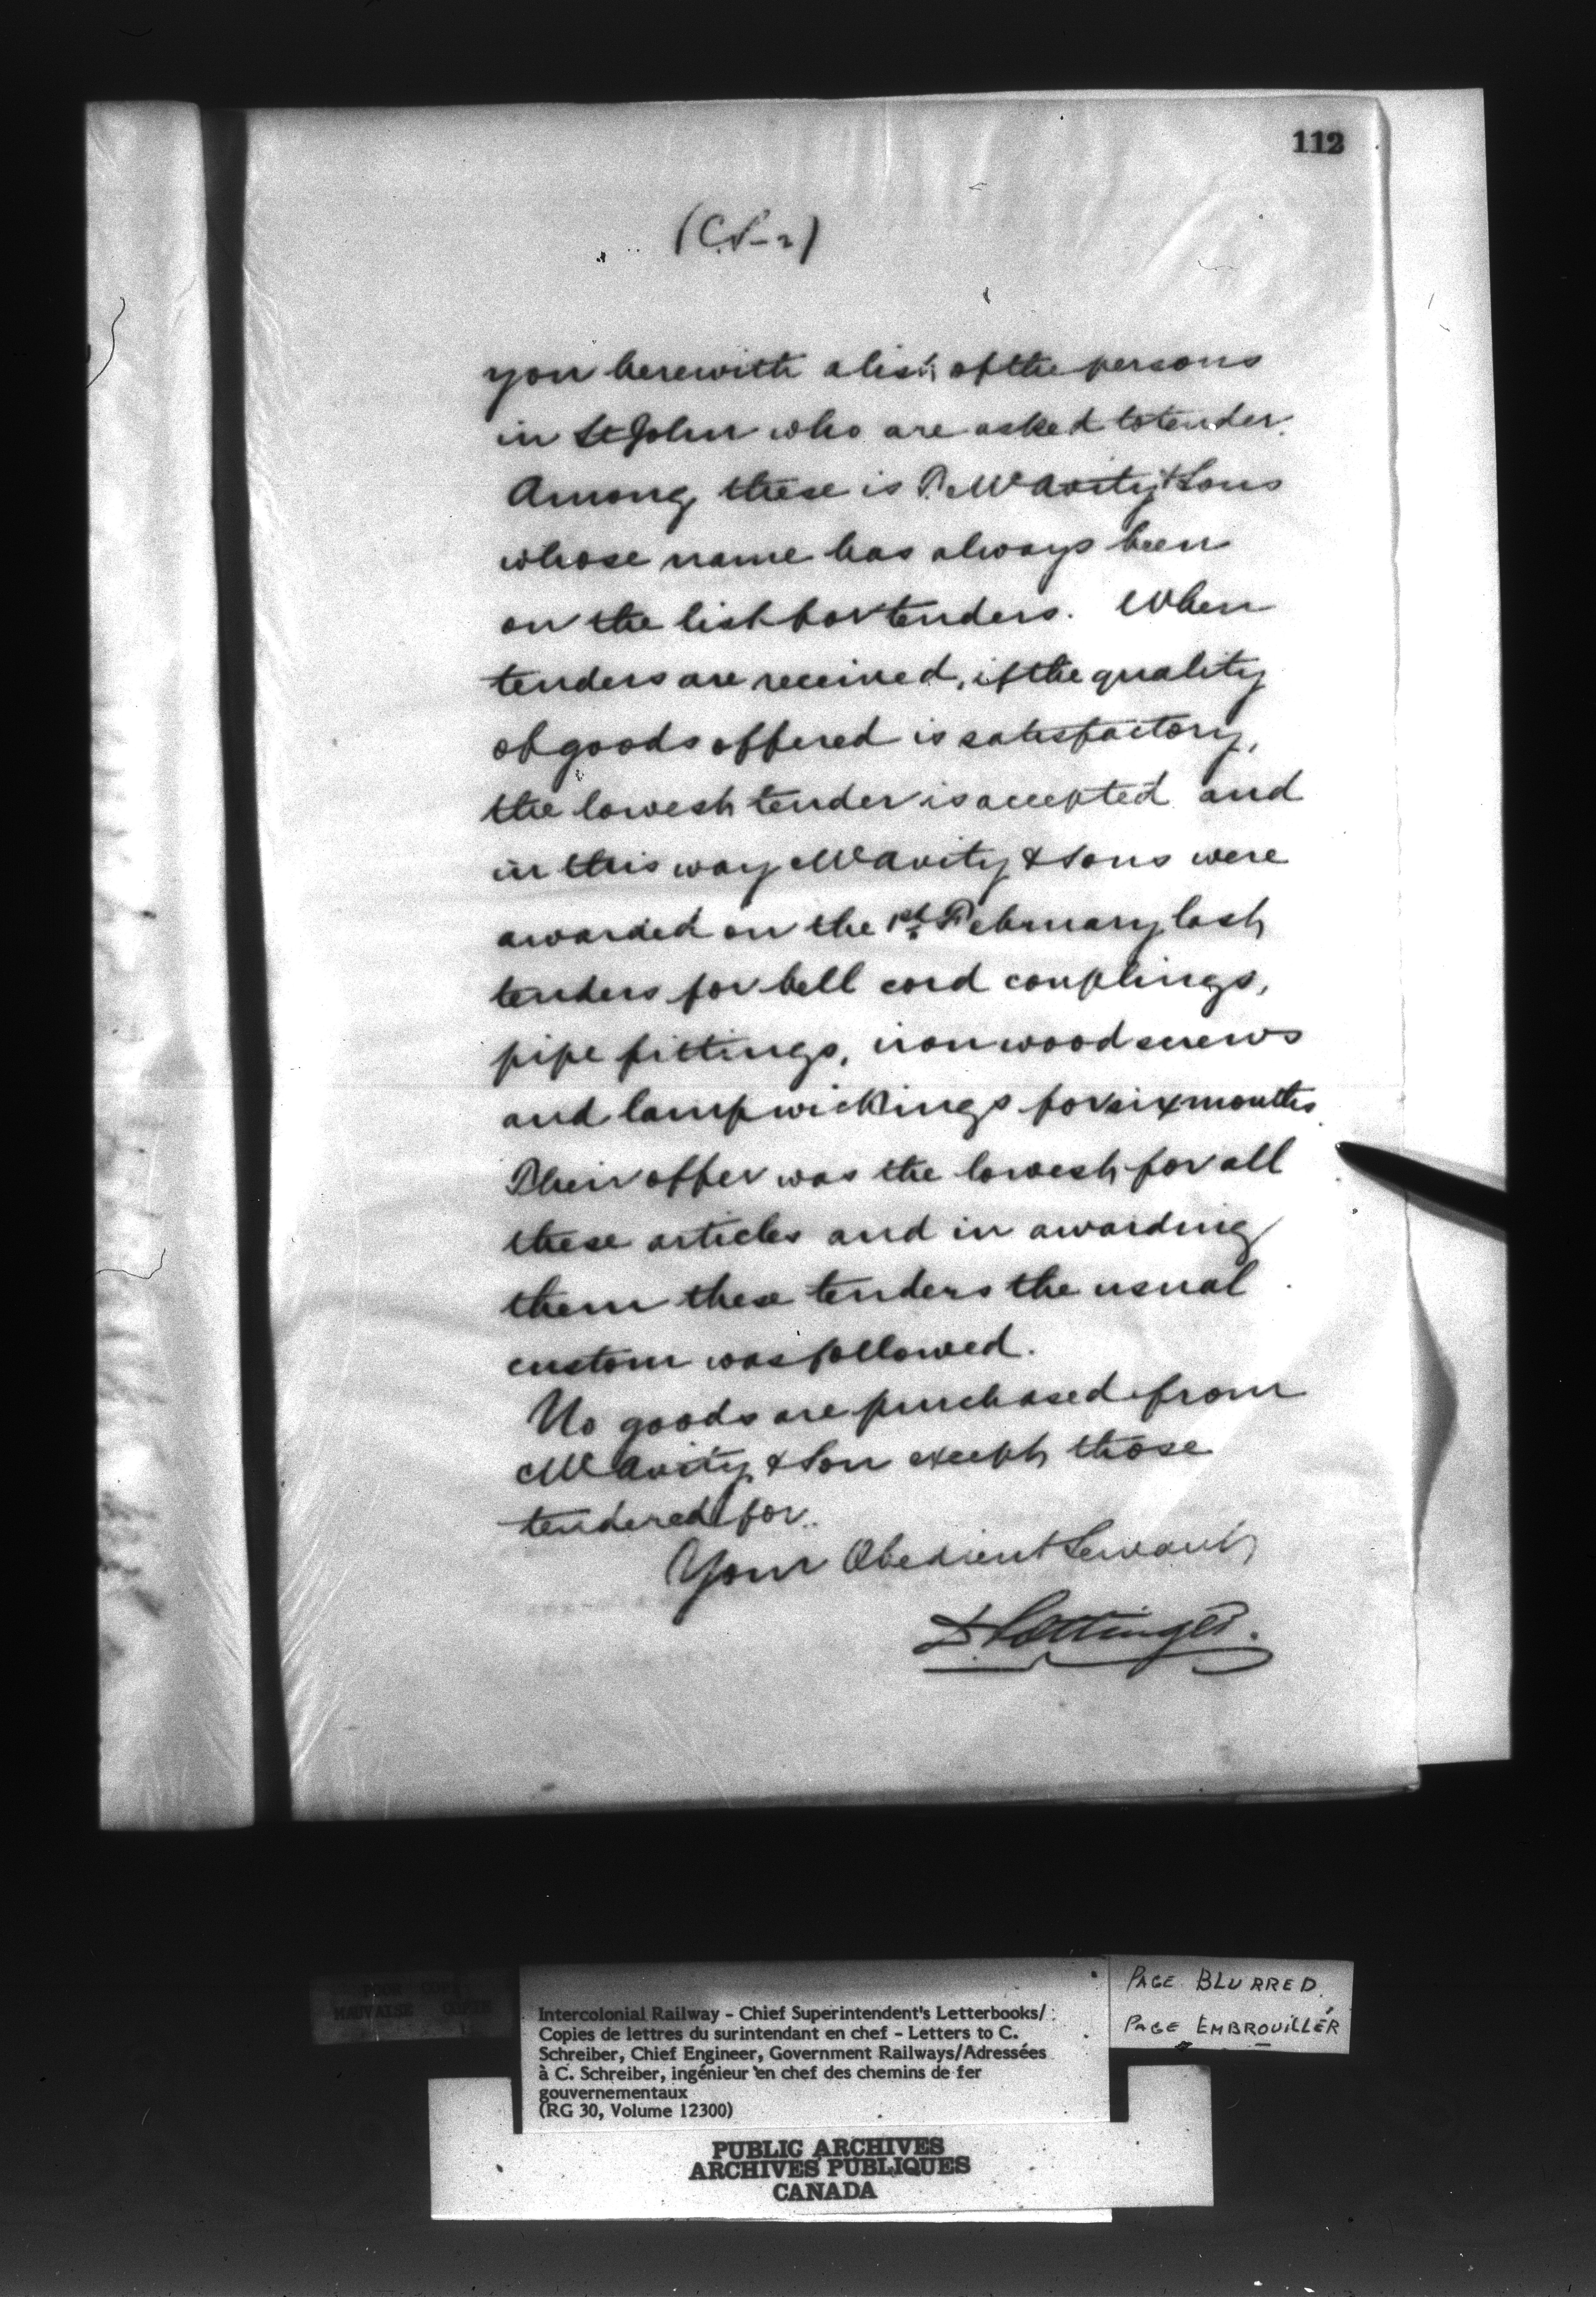 112
(C.S-2)
you herewith a list of the persons
in St John who are asked to tender.
Among these is T. McAvity & Sons
whose name has always been
on the list for tenders. When
tenders are received, if the quality
of goods offered is satisfactory,
the lowest tender is accepted and
in this way McAvity & Sons were
awarded on the 1st February last
tenders for bell cord couplings,
pipe fittings, iron wood screws
and lamp wickings for six months.
Their offer was the lowest for all
these articles and in awarding
them these tenders the usual
custom was followed.
No goods are purchased from
McAvity & Son except those
tendered for.
Your Obedient Servant
D. Pottinger.
MAUVAISE COPIE
Intercolonial Railway - Chief Superintendent's Letterbooks/
Copies de lettres du surintendant en chef - Letters to C.
Schreiber, Chief Engineer, Government Railways/Adressées
à C. Schreiber, ingénieur en chef des chemins de fer
gouvernementaux
(RG 30, Volume 12300)
PAGE BLURRED.
PAGE EMBROUILLÉR
PUBLIC ARCHIVES
ARCHIVES PUBLIQUES
CANADA